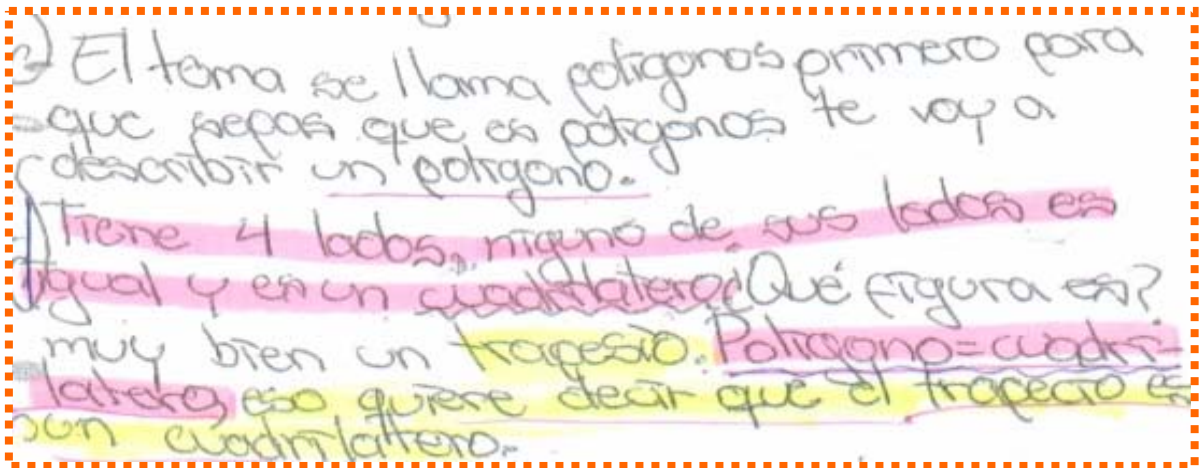 El tema se llama poligonos primero para
que sepas que es poligonos te voy a
describir un poligono.
Tiene 4 lados, niguno de sus lados es
igual y es un cuadrilatero ¿Qué figura es?
muy bien un trapesio. Poligono=cuadri-
latero, eso quiere decir que el trapecio es
un cuadrilattero.